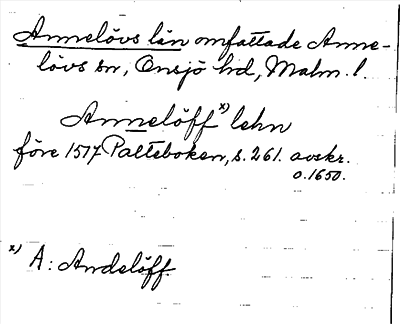 Annelövs län omfattade Anne-
lövs sn, Onsjö hd, Malm. l.
Annelöff x) lehn
före 1517 Palteboken, s. 261. avskr.
o. 1650.
x) A: Andelöff.